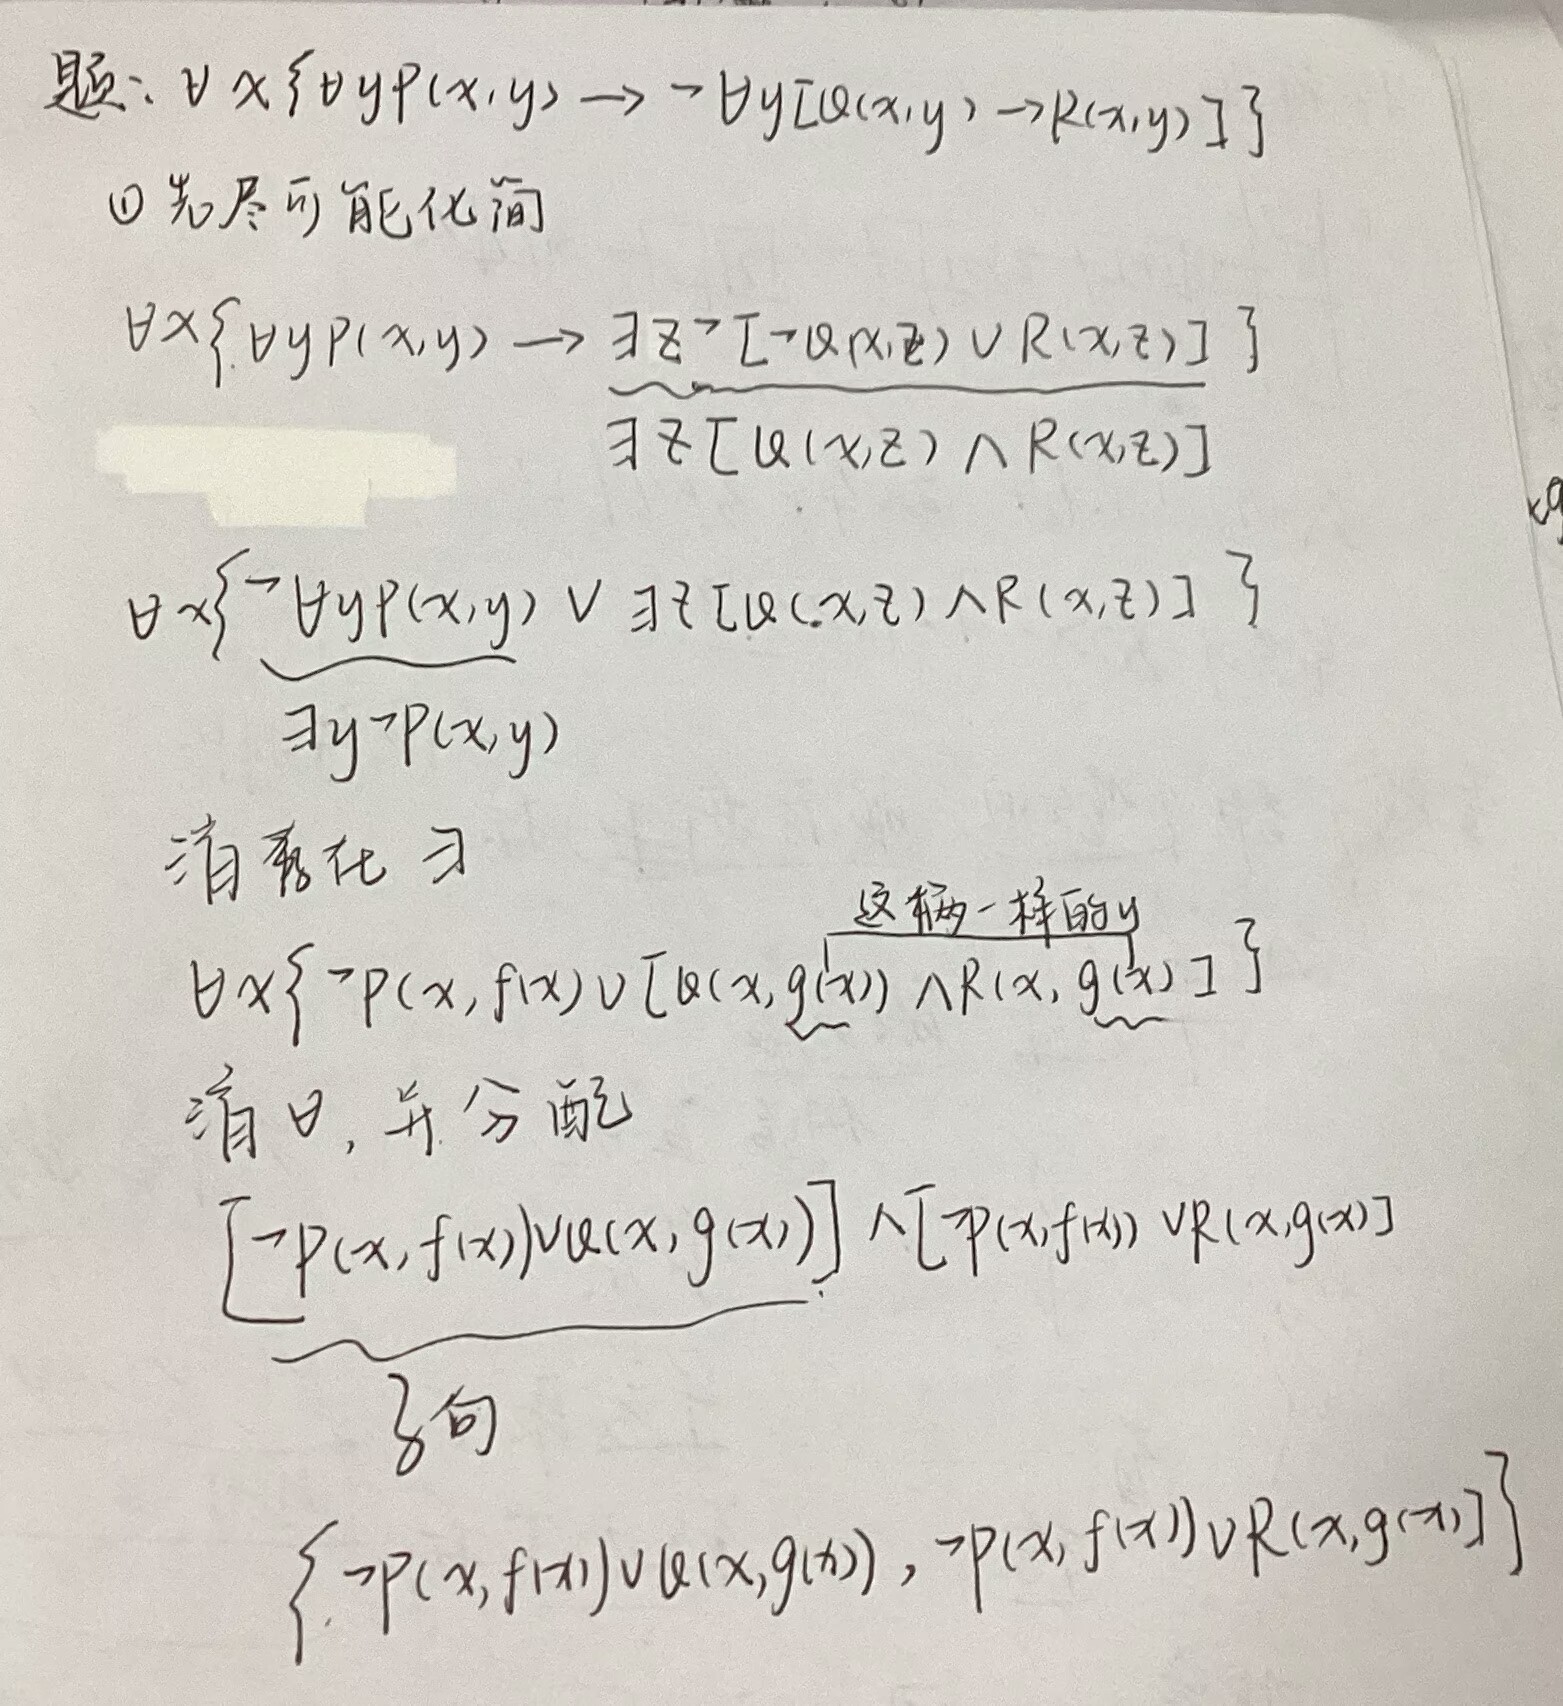 题: ∀x{∀yP(x,y) → ¬∀y[Q(x,y) → R(x,y)]}
① 先尽可能化简
∀x{∀yP(x,y) → ∃z¬[¬Q(x,z) ∨ R(x,z)]}
∃z[Q(x,z) ∧ R(x,z)]
∀x{¬∀yP(x,y) ∨ ∃z[Q(x,z) ∧ R(x,z)]}
∃y¬P(x,y)
消存在 ∃
这俩一样的y
∀x{¬P(x, f(x) ∨ [Q(x, g(x)) ∧ R(x, g(x)]}
消∀, 并分配
[¬P(x, f(x)) ∨ Q(x, g(x))] ∧ [¬P(x,f(x)) ∨ R(x,g(x)]
子句
{¬P(x, f(x)) ∨ Q(x,g(x)), ¬P(x, f(x)) ∨ R(x,g(x)]}